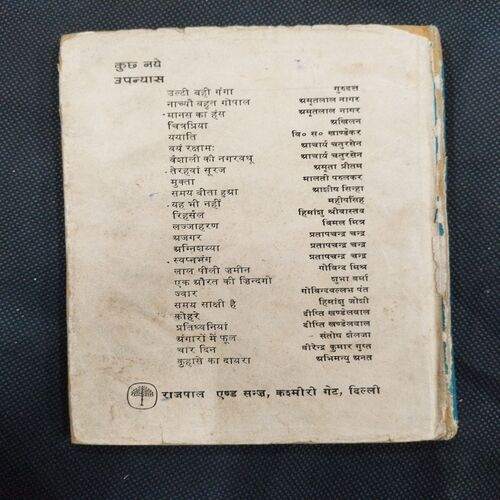 कुछ नये
उपन्यास
उल्टी बही गंगा गुरुदत्त
नाच्यौ बहुत गोपाल अमृतलाल नागर
मानस का हंस अमृतलाल नागर
चित्रप्रिया अखिलन
ययाति वि० स० खाण्डेकर
वयं रक्षामः आचार्य चतुरसेन
वैशाली की नगरवधू आचार्य चतुरसेन
तेरहवां सूरज अमृता प्रीतम
मुक्ता मालती परुलकर
समय बीता हुआ आशीष सिन्हा
यह भी नहीं महीपसिंह
रिहर्सल हिमांशु श्रीवास्तव
लज्जाहरण बिमल मित्र
अजगर प्रतापचन्द्र चन्द्र
अग्निशय्या प्रतापचन्द्र चन्द्र
स्वप्नभंग प्रतापचन्द्र चन्द्र
लाल पीली ज़मीन गोविन्द मिश्र
एक औरत की ज़िन्दगी शुभा वर्मा
ज्वार गोविन्दवल्लभ पंत
समय साक्षी है हिमांशु जोशी
कोहरे दीप्ति खण्डेलवाल
प्रतिध्वनियां दीप्ति खण्डेलवाल
अंगारों में फूल संतोष शैलजा
चार दिन वीरेन्द्र कुमार गुप्त
कुहासे का दायरा अभिमन्यु अनत
राजपाल एण्ड सन्ज़, कश्मीरी गेट, दिल्ली